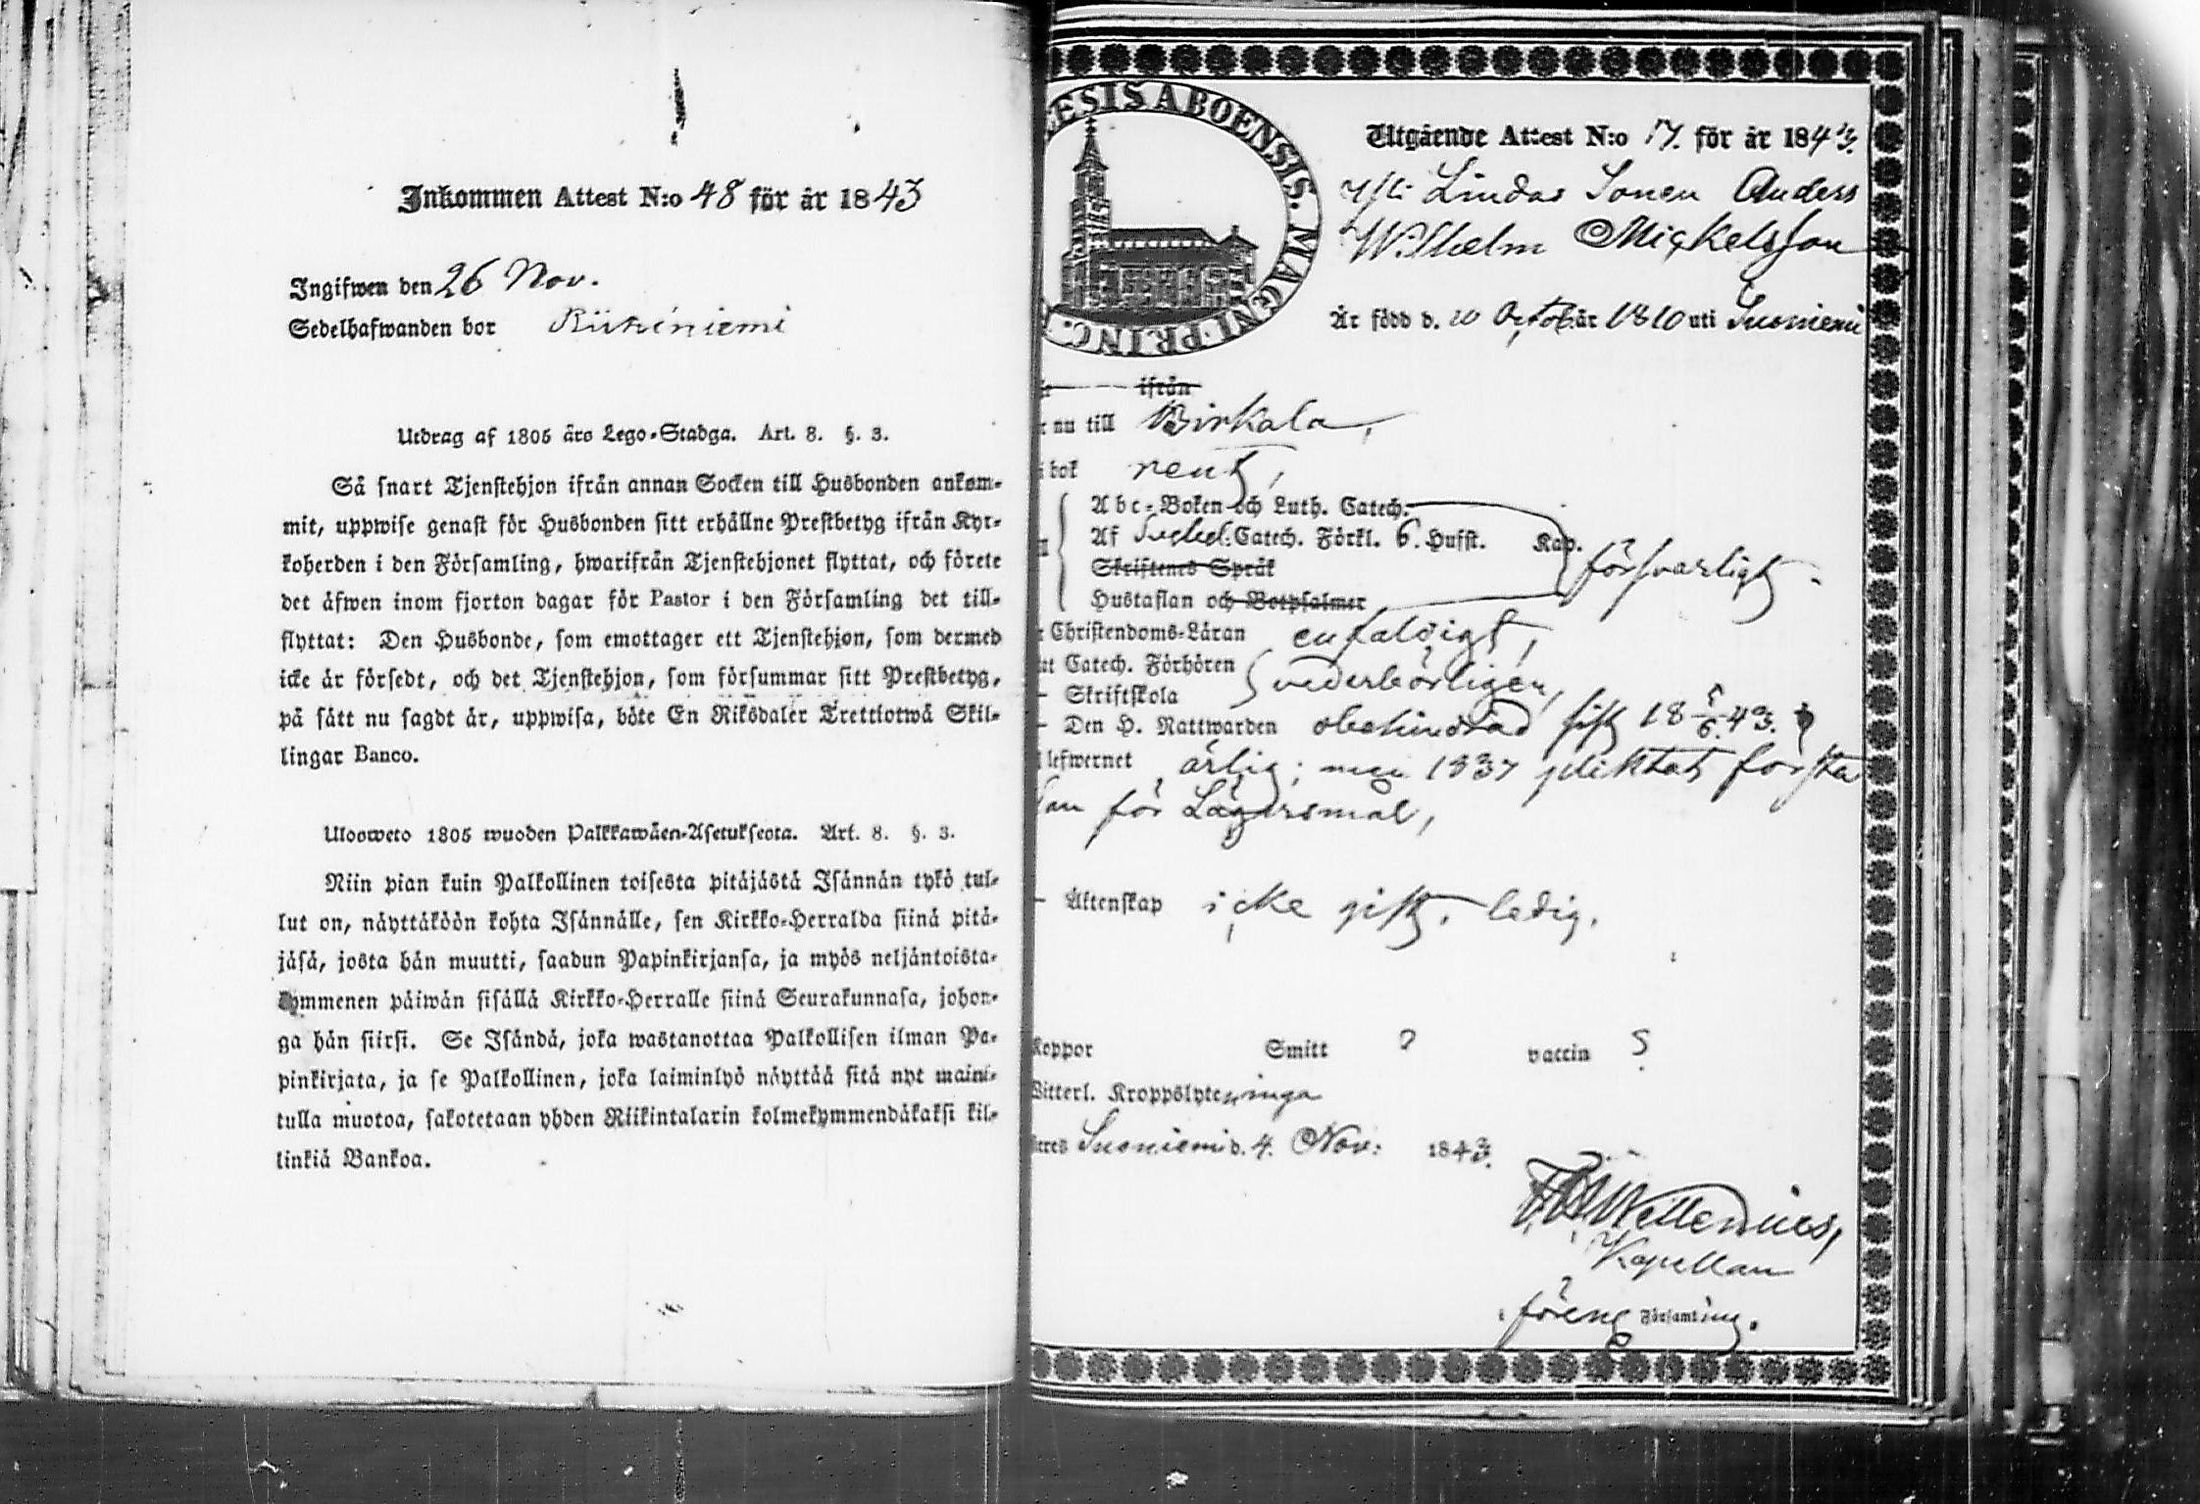 Inkommen Attest N:o 48 för år 1843
Ingifwen den 26 Nov.
Sedelhafwanden bor
Utdrag af 1805 års Lego-Stadga. Art. 8. §. 3.
Så snart Tjenstehjon ifrån annan Socken till Husbonden ankom-
mit, uppwise genast för Husbonden sitt erhållne Prestbetyg ifrån Kyr-
koherden i den Församling, hwarifrån Tjenstehjonet flyttat, och förete
det äfwen inom fjorton dagar för Pastor i den Församling det till-
flyttat: Den Husbonde, som emottager ett Tjenstehjon, som dermed
icke är försedt, och det Tjenstehjon, som försummar sitt Prestbetyg,
på sätt nu sagdt är, uppwisa, böte En Riksdaler Trettiotwå Skil-
lingar Banco.
Uloosweto 1805 wuoden Palkkawäen-Asetuksesta. Art. 8. §. 3.
Niin pian kuin Palkollinen toisesta pitäjästä Isännän tykö tul-
lut on, näyttäköön kohta Isännälle, sen Kirkko-Herralda siinä pitä-
jäsä, josta hän muutti, saadun Papinkirjansa, ja myös neljäntoista-
kymmenen päiwän sisällä Kirkko-Herralle siinä Seurakunnasa, johon-
ga hän siirsi. Se Isändä, joka wastanottaa Palkollisen ilman Pa-
pinkirjata, ja se Palkollinen, joka laiminlyö näyttää sitä nyt maini-
tulla muotoa, sakotetaan yhden Riikintalarin kolmekymmendäkaksi kil-
linkiä Bankoa.
ESIS ABOENSIS. MAGNI. PRINC.
Utgående Attest N:o 17. för år 1843.
Lindas Sonen Anders
Wilhelm Mickelsson
Är född d. 10 Octob. år 1810 uti Suoniemi
ifrån
nu till Birkala,
i bok rent,
Abc-Boken och Luth. Catech.
Af Svebel. Catech. Förkl. 6. Hufst. Kap. försvarligt.
Skriftenes Språk
Hustaflan och Botpsalmer
Christendoms-Läran enfaldigt,
Catech. Förhören
vederbörligen,
Skriftskola
Den H. Nattwarden obehindrad sist 18 5/6 43.
lefwernet ärlig; men 1837 pliktat första
för Lägersmål,
Äktenskap icke gift, ledig.
Koppor Smitt ? vaccin ?
Witterl. Kroppslyten inga
Suoniemi d. 4. Nov: 1843.
Wellenius,
Kapellan
i föreng Församling.